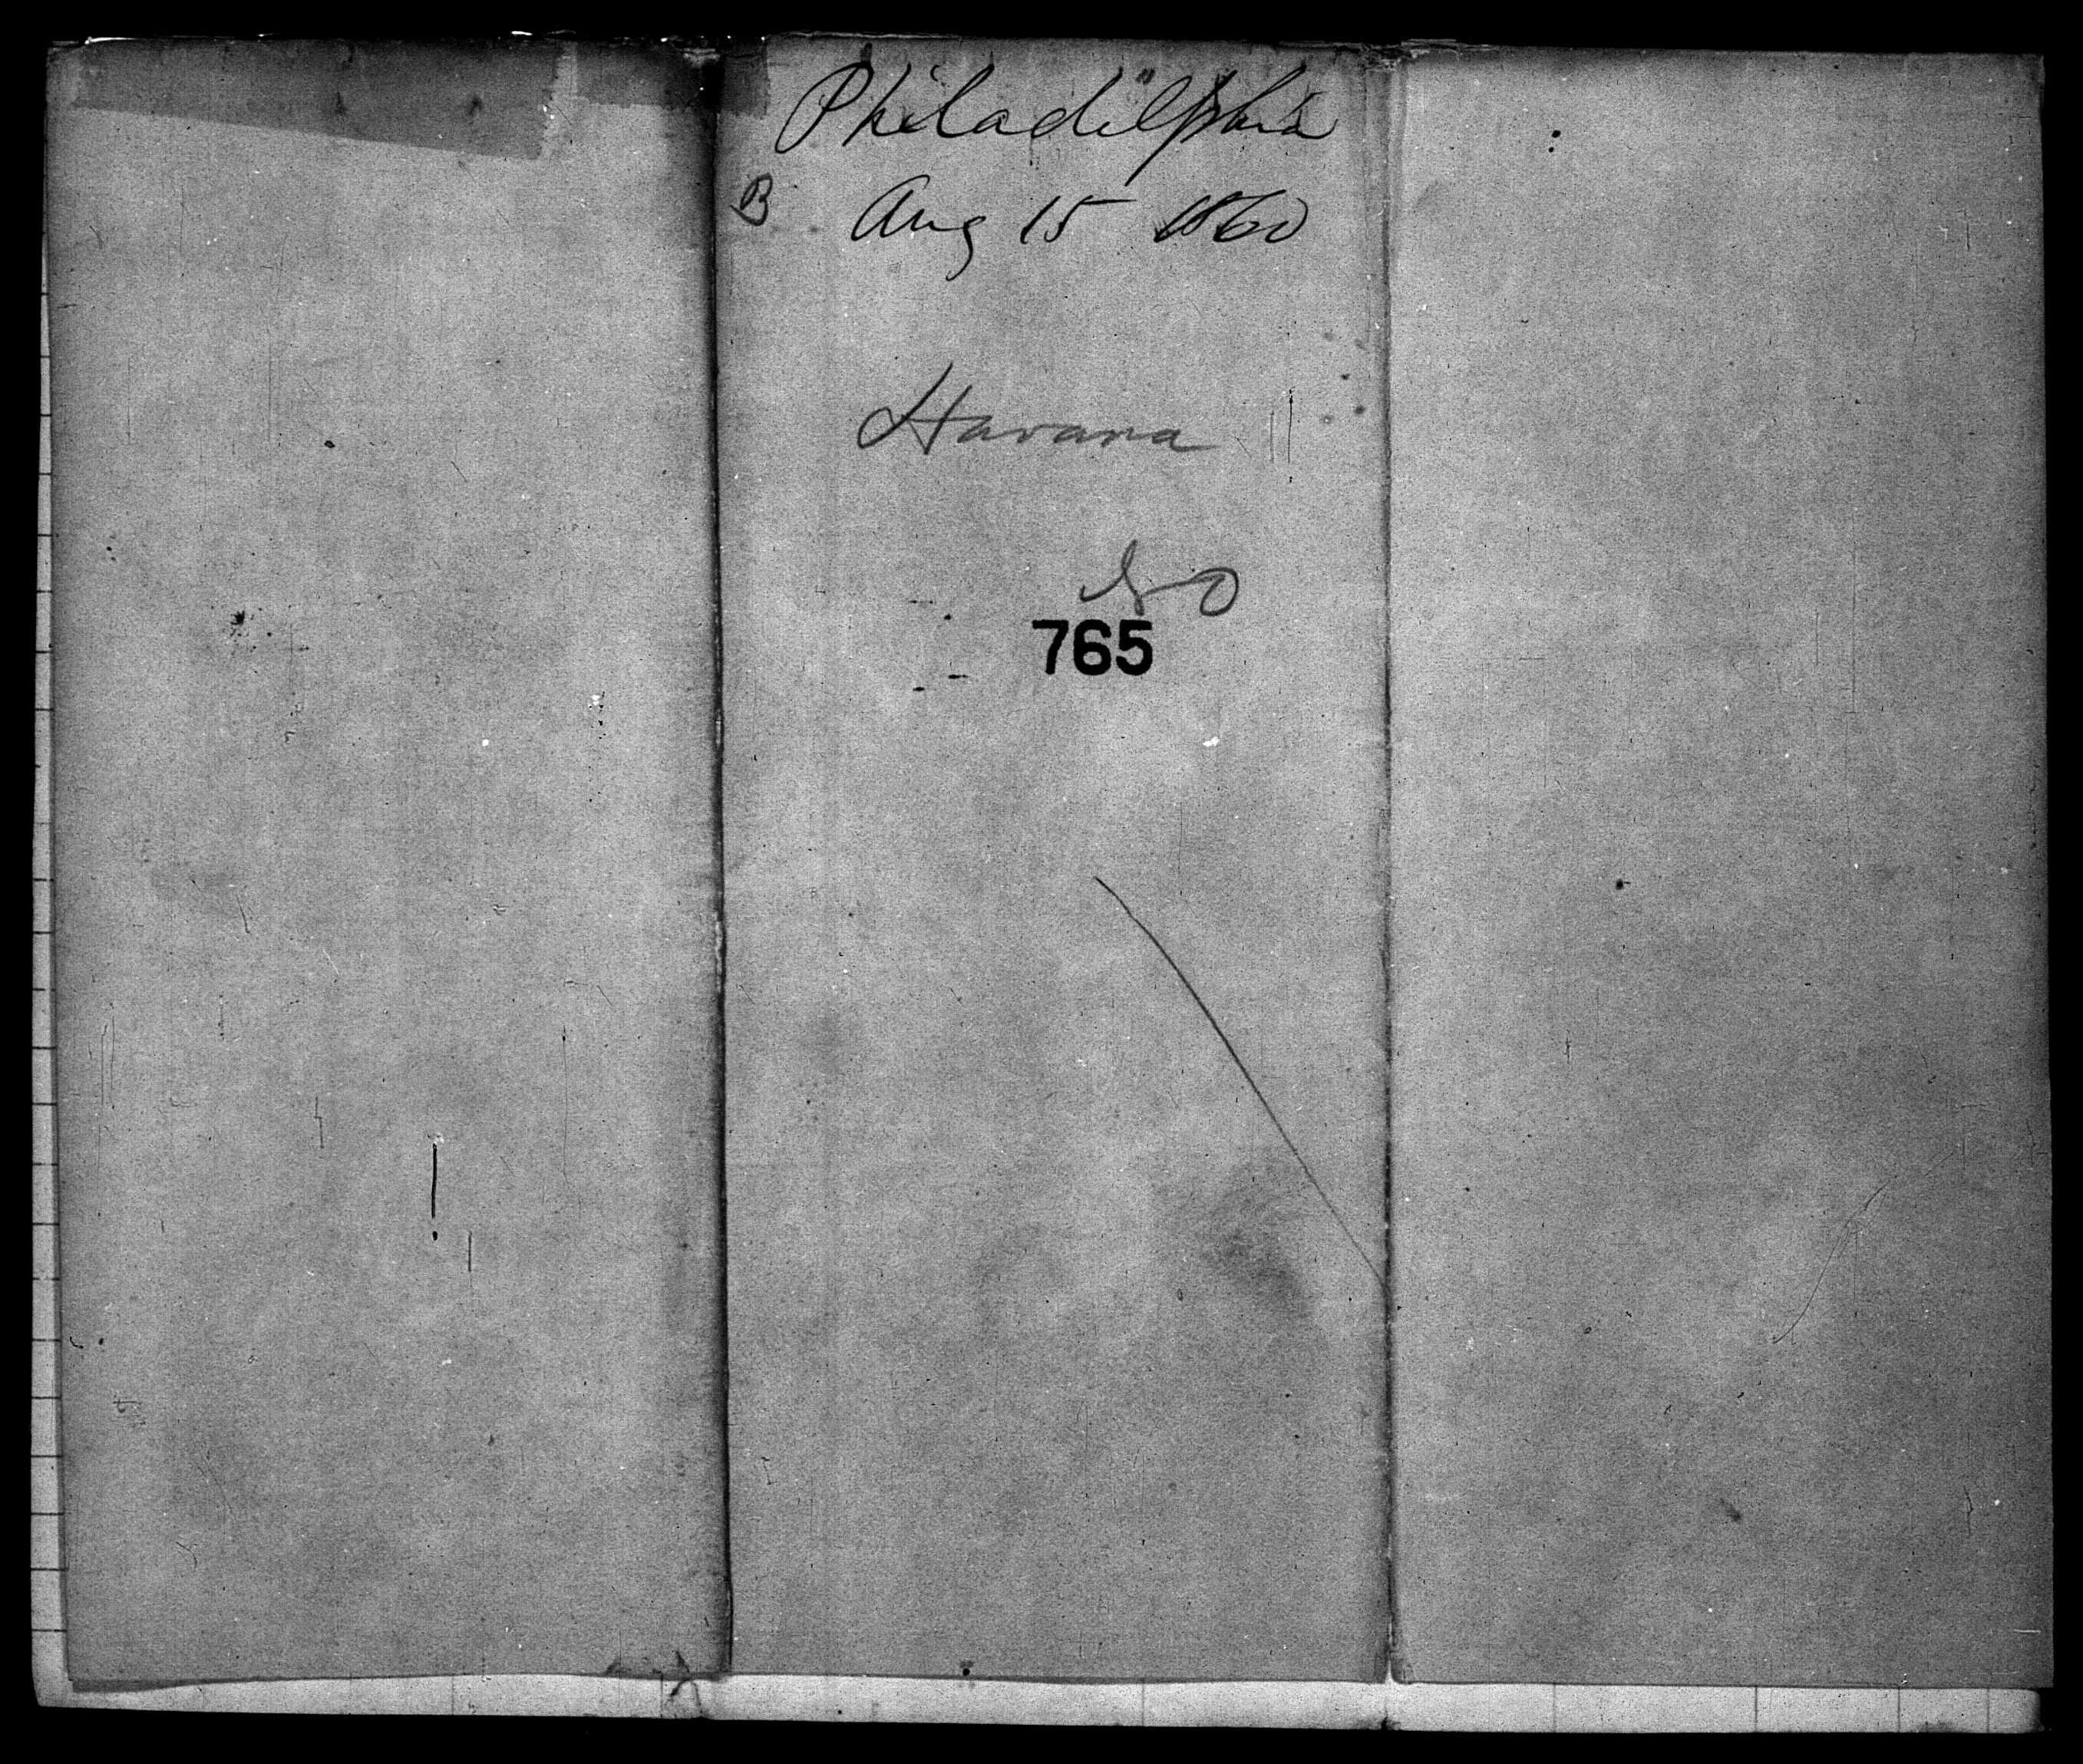 Philadelphia
B Aug 15 1860
Havana
NO
765